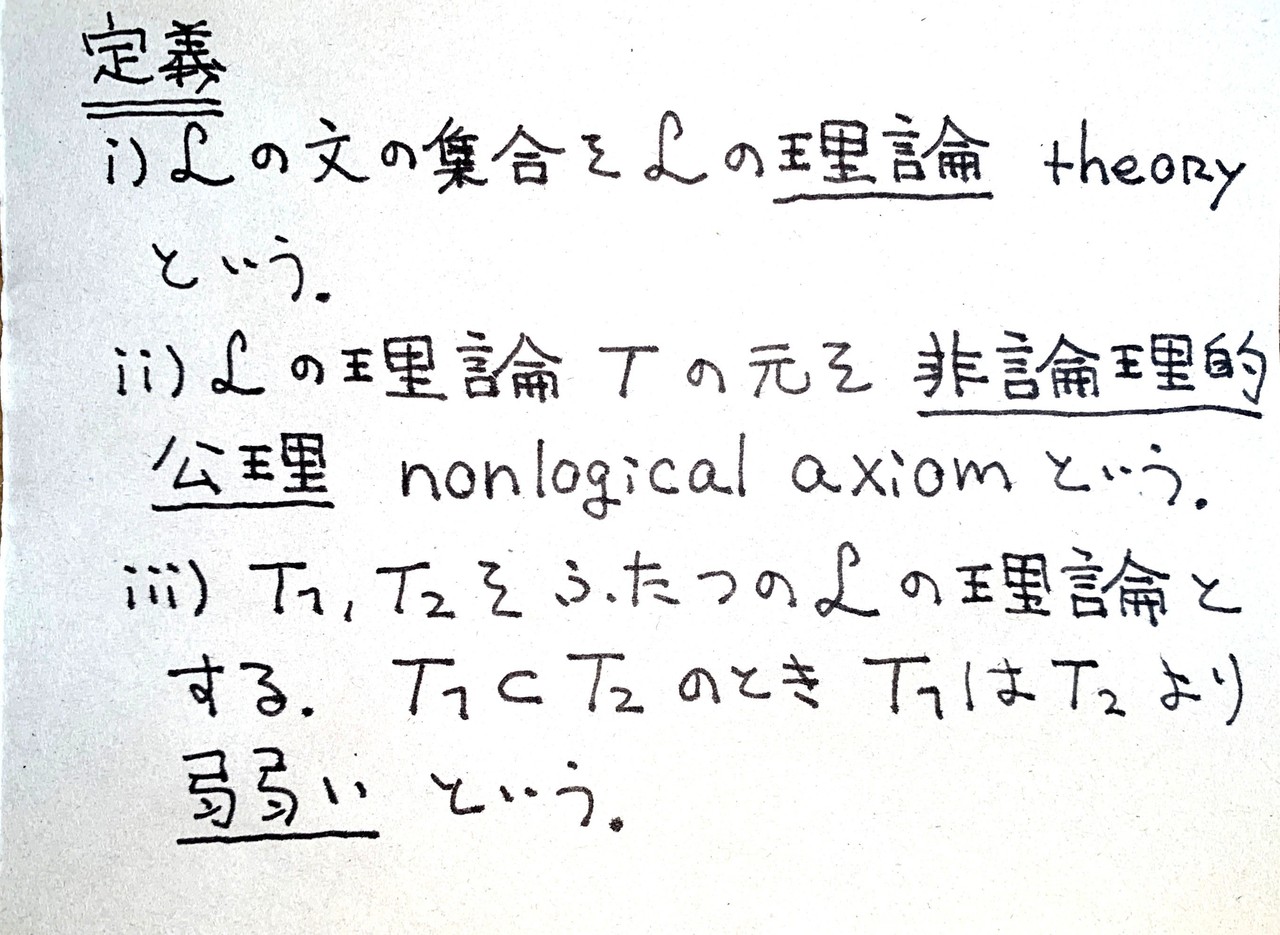 定義
i) ℒの文の集合をℒの理論 theory
という.
ii) ℒの理論 T の元を 非論理的
公理 nonlogical axiom という.
iii) T₁, T₂を ふたつのℒの理論と
する. T₁⊂T₂ のとき T₁はT₂より
弱い という.